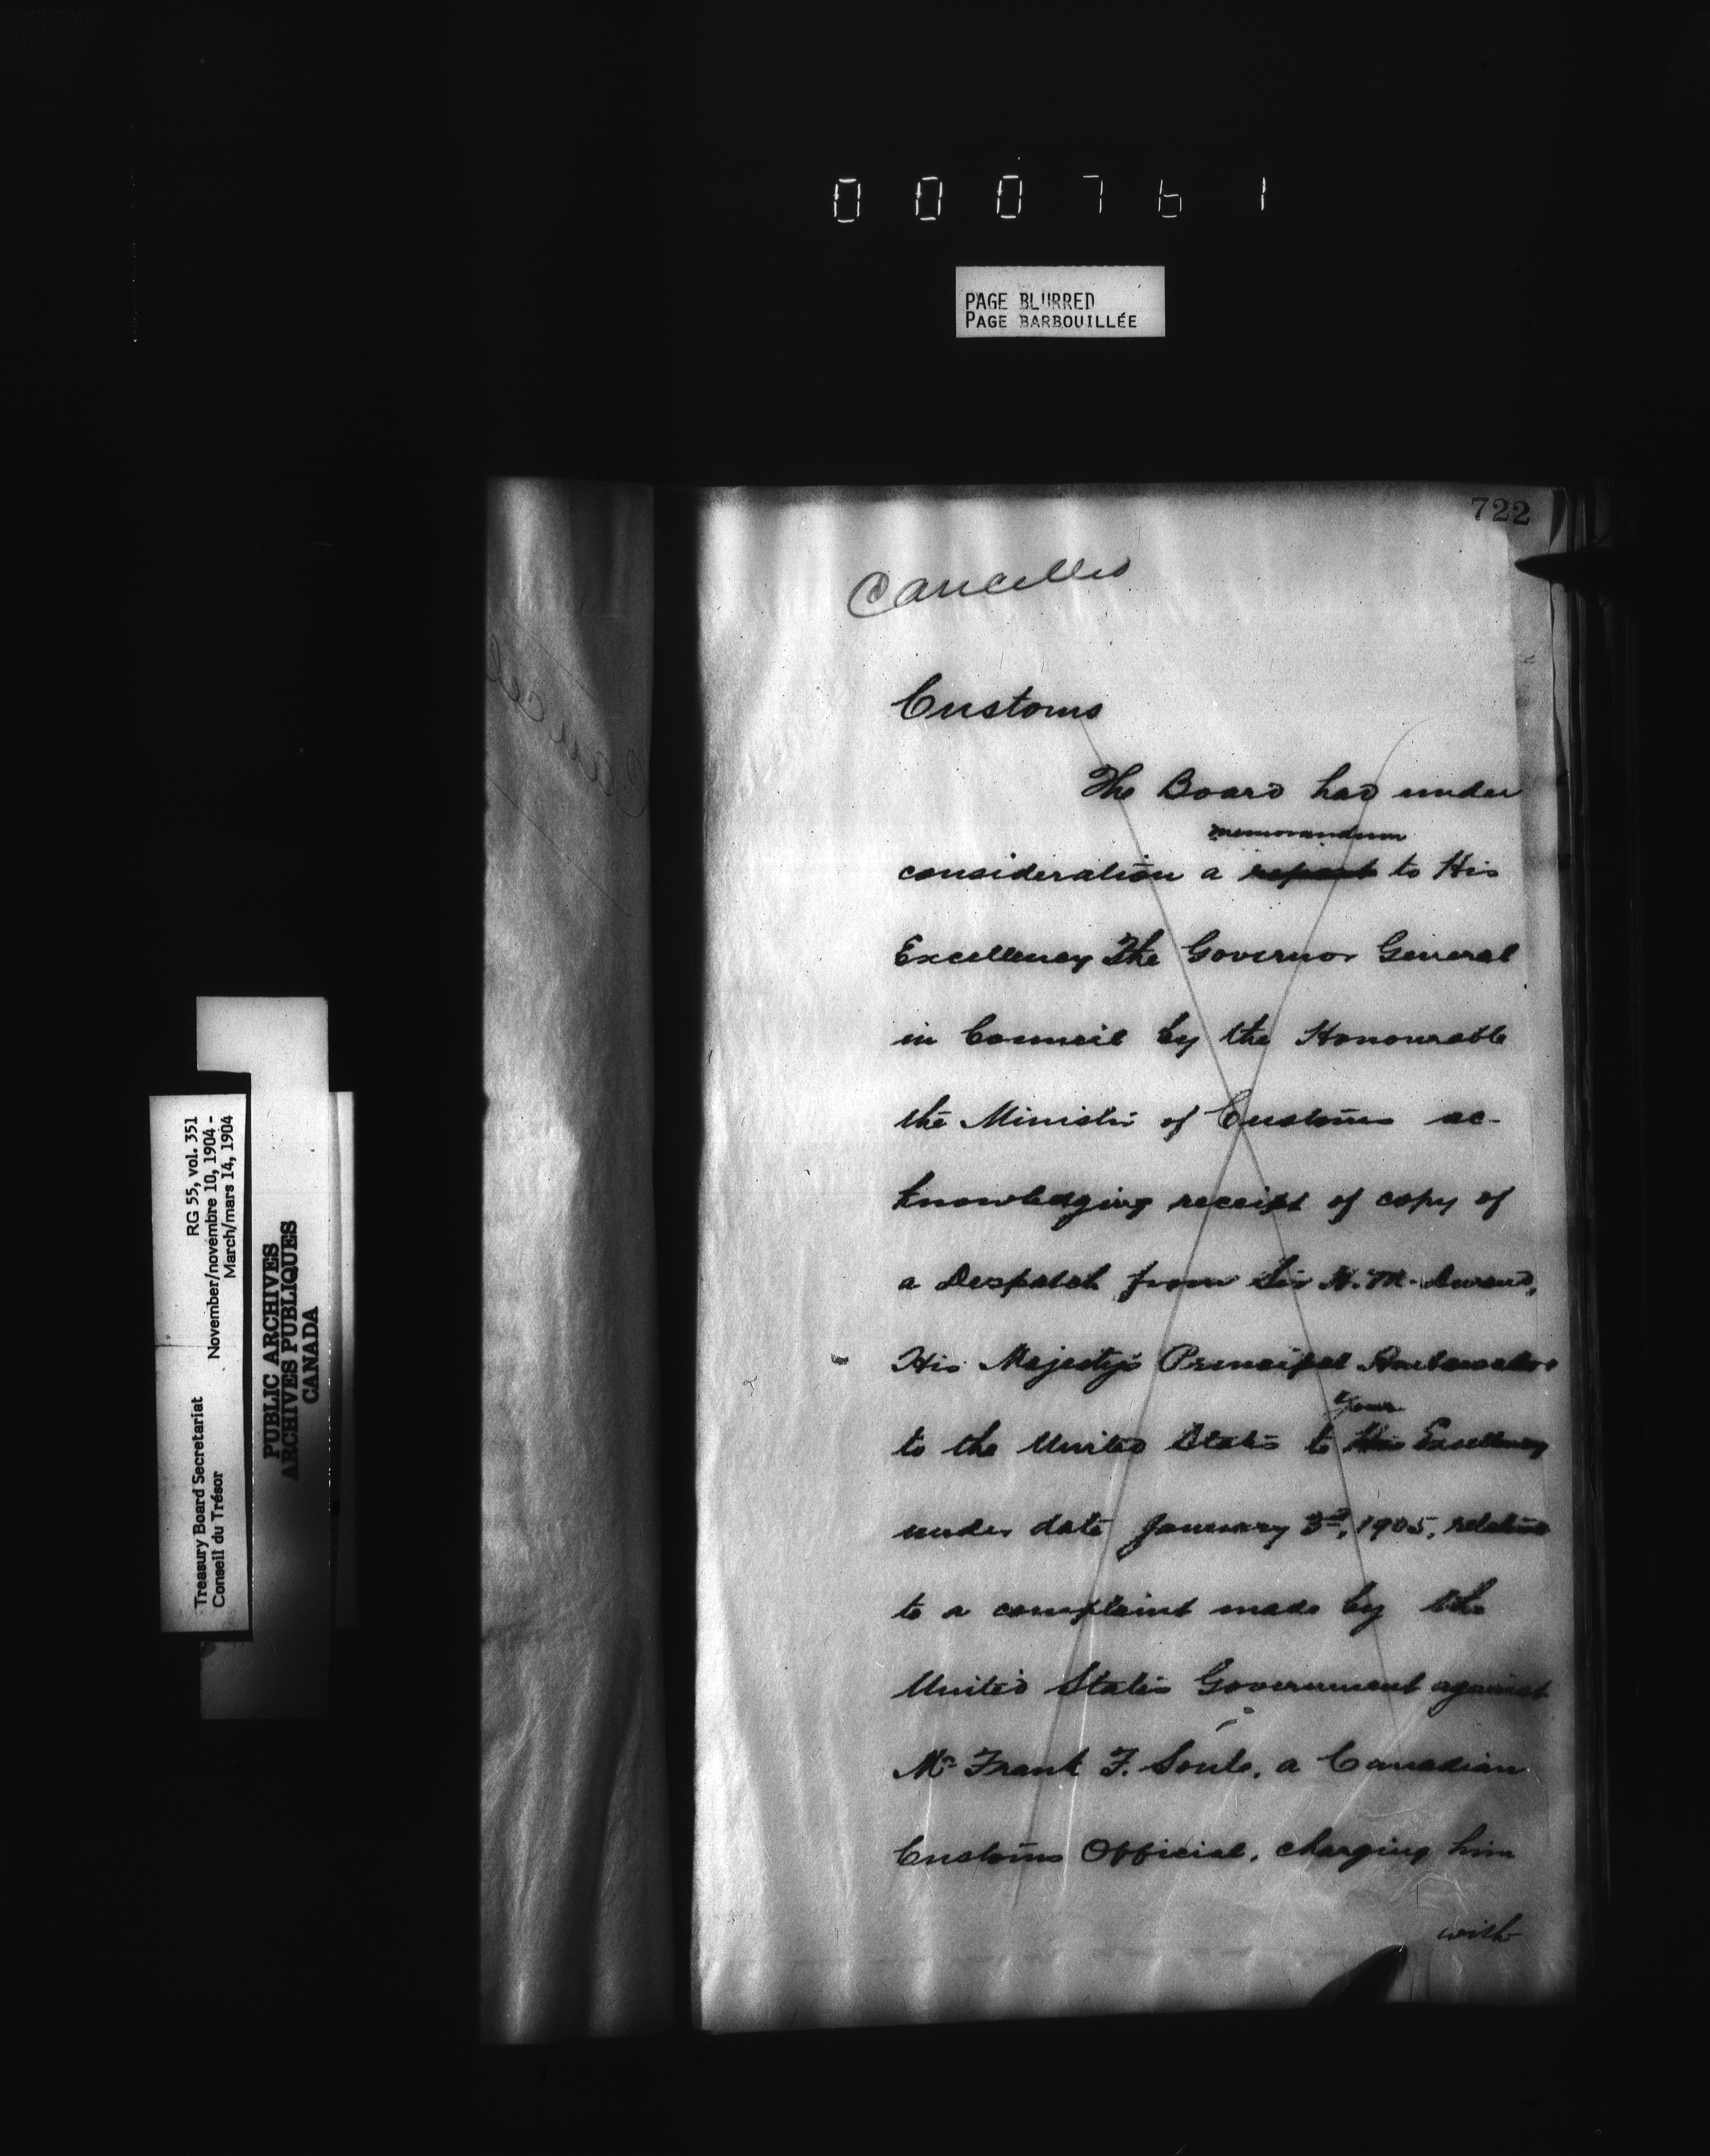 000761
PAGE BLURRED
PAGE BARBOUILLÉE
722
Cancelled
Customs
The Board had under
memorandum
consideration a report to His
Excellency The Governor General
in Council by the Honourable
the Minister of Customs ac-
knowledging receipt of copy of
a Despatch from Sir H. M. Durand,
His Majesty's Principal Ambassador
Your
to the United States to His Excellency
under date January 3rd, 1905, relative
to a complaint made by the
United States Government against
Mr Frank F. Soule, a Canadian
Customs Official, charging him
with
Cancel
Treasury Board Secretariat RG 55, vol. 351
Conseil du Trésor November/novembre 10, 1904 -
March/mars 14, 1904
PUBLIC ARCHIVES
ARCHIVES PUBLIQUES
CANADA